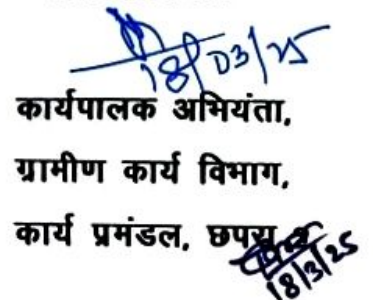 18/03/25
कार्यपालक अभियंता,
ग्रामीण कार्य विभाग,
कार्य प्रमंडल, छपरा
18/3/25